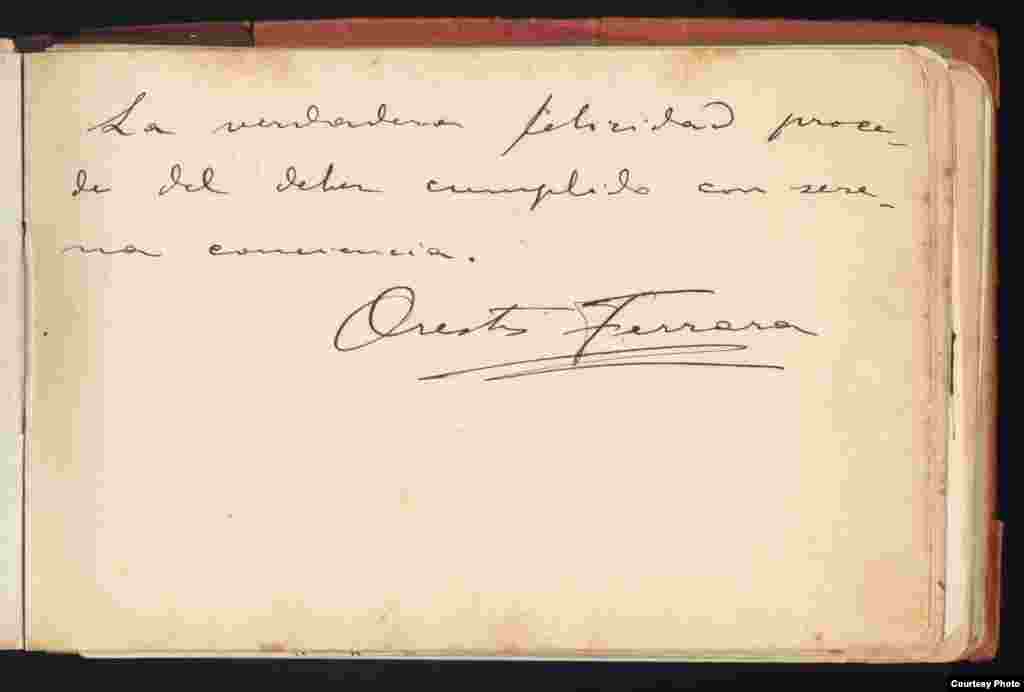 La verdadera felicidad proce-
de del deber cumplido con sere-
na conciencia.
Orestes Ferrara
Courtesy Photo